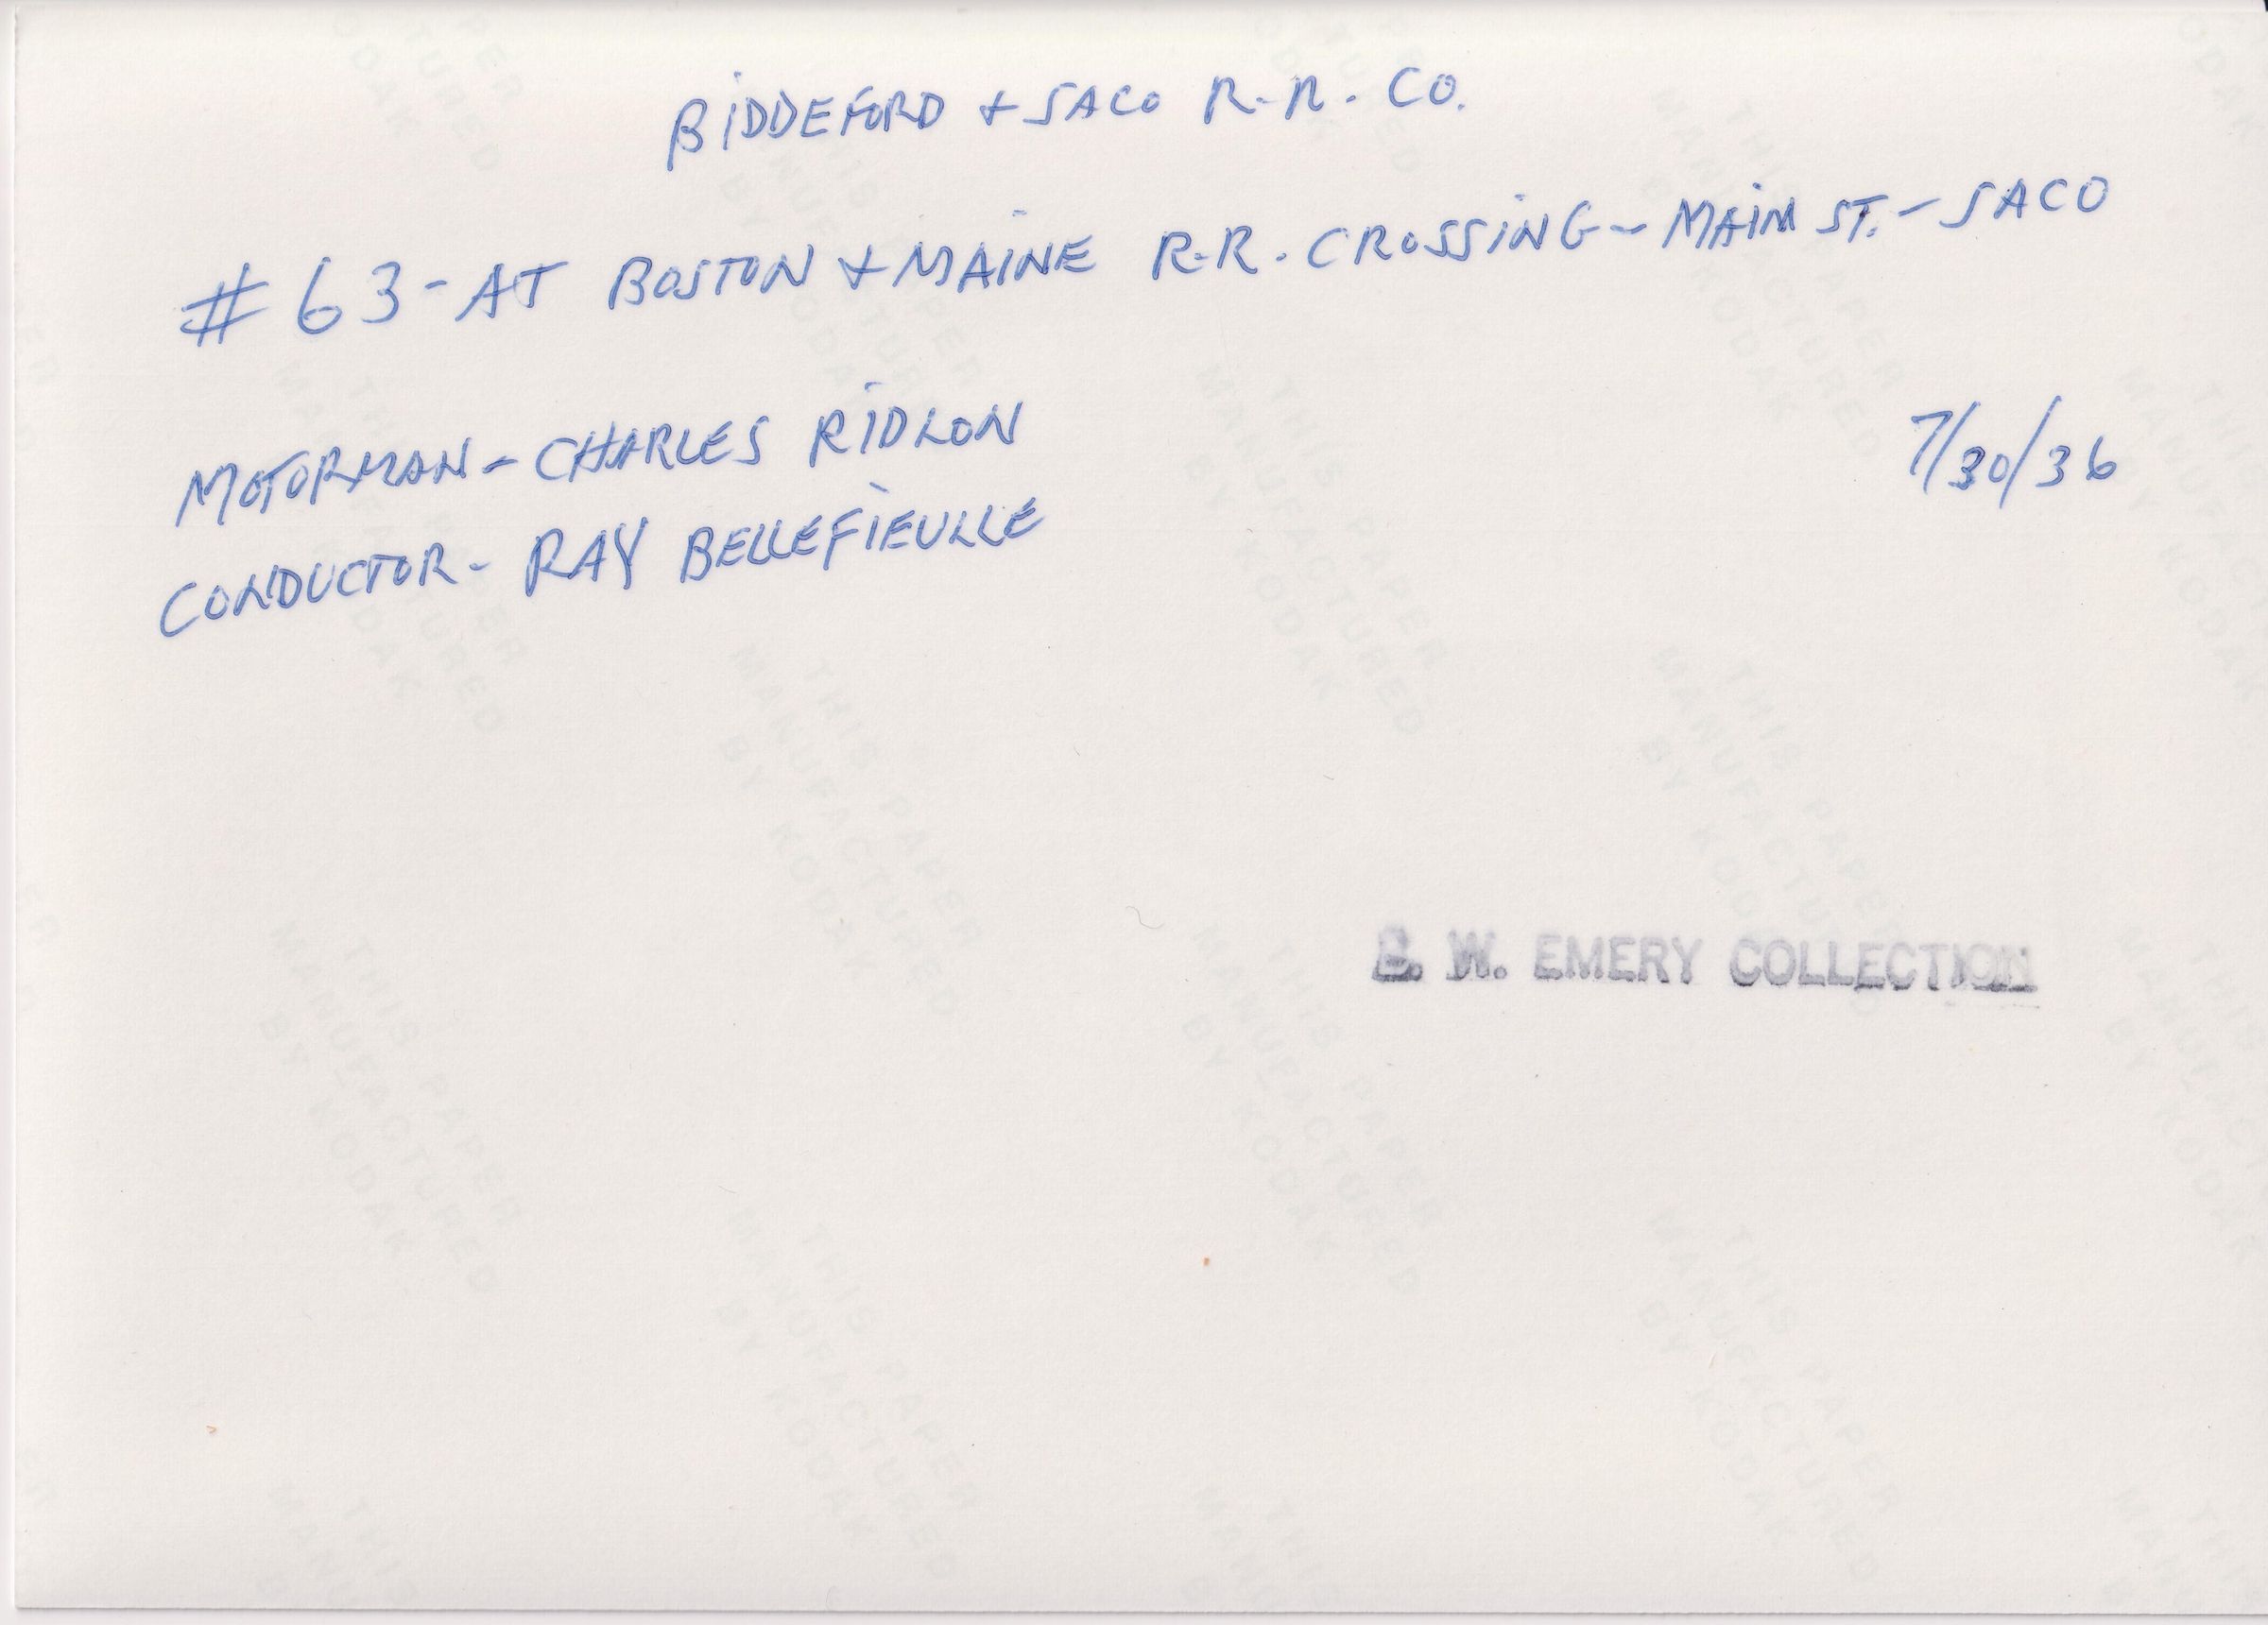 BIDDEFORD & SACO R.R. CO.
# 63 - AT BOSTON & MAINE R.R. CROSSING - MAIN ST. - SACO
MOTORMAN - CHARLES RIDLON
7/30/36
CONDUCTOR - RAY BELLEFIEULLE
W. EMERY COLLECTION
THIS PAPER
MANUFACTURED
BY KODAK